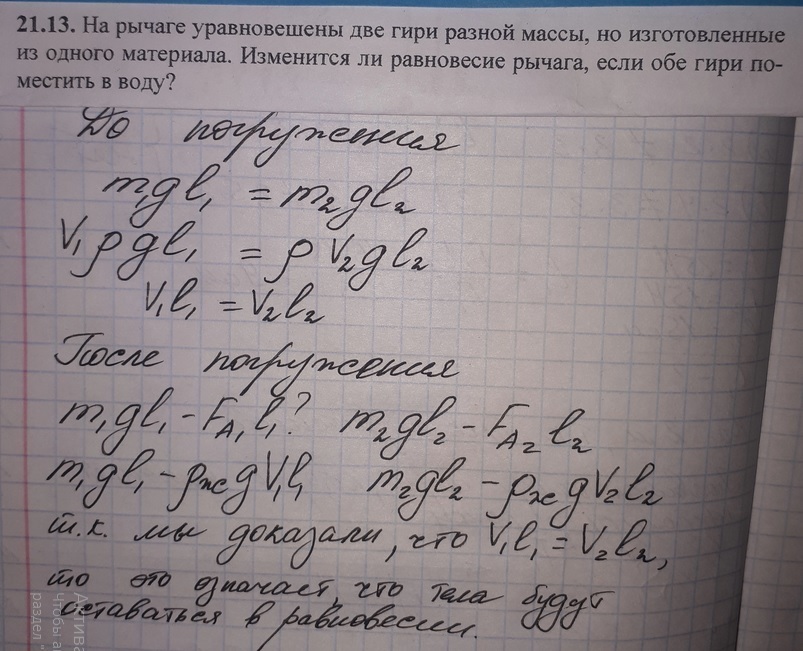 21.13. На рычаге уравновешены две гири разной массы, но изготовленные
из одного материала. Изменится ли равновесие рычага, если обе гири по-
местить в воду?
До погружения
m₁gl₁ = m₂gl₂
V₁ρgl₁ = ρV₂gl₂
V₁l₁ = V₂l₂
После погружения
m₁gl₁ - F_A₁l₁ ? m₂gl₂ - F_A₂l₂
m₁gl₁ - ρжgV₁l₁ m₂gl₂ - ρжgV₂l₂
т.к. мы доказали, что V₁l₁ = V₂l₂,
то это означает, что тела будут
оставаться в равновесии.